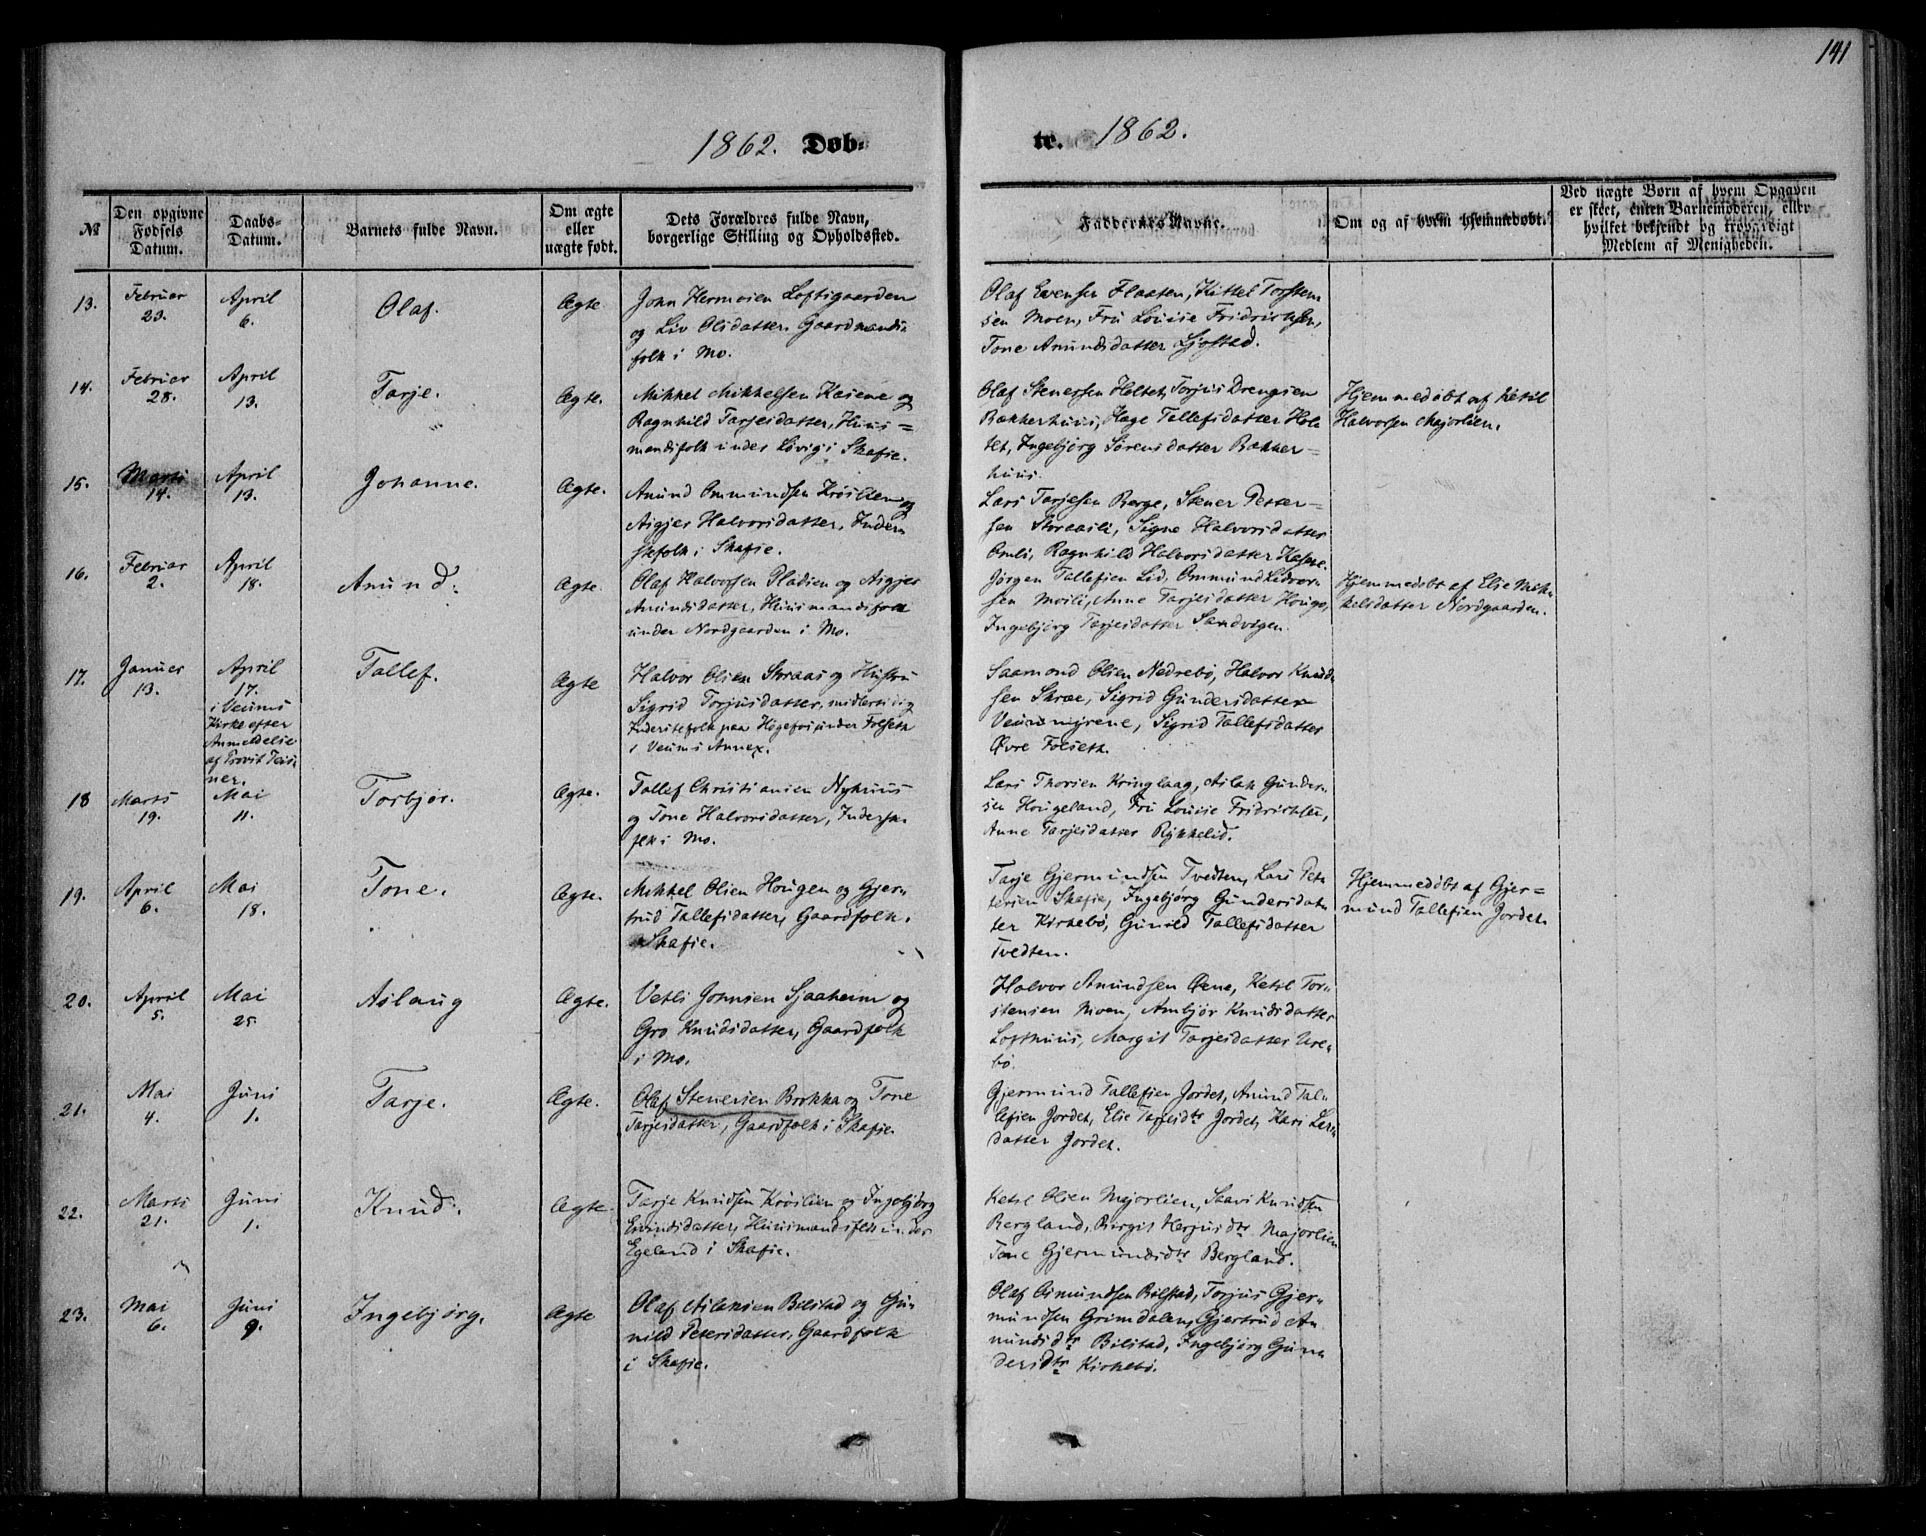 141
1862. Døb-
te. 1862.
№
Den opgivne Fødsels Datum.
Daabs-Datum.
Barnets fulde Navn.
Om ægte eller uægte født.
Dets Forældres fulde Navn, borgerlige Stilling og Opholdssted.
Faddernes Navne.
Om og af hvem hjemmedøbt.
Ved uægte Børn af hvem Opgaven er skeet, enten Barnemoderen, eller hvilket bekjendt og troværdigt Medlem af Menigheden.
13.
Februar 23.
April 6.
Olaf.
Ægte
John Hermoien Loftsgaarden
og Liv Olsdatter Gaardmands-
folk i Mo.
Olaf Evensen Flaaten, Kittel Torsten-
sen Moen, Fru Louise Fridrichsen,
Tone Anundsdatter Sjostad.
14.
Februar 28.
April 13.
Tarje.
Ægte.
Mikkel Mikkelsen Kasene og
Ragnhild Tarjesdatter, Huus-
mandsfolk under Løvig i Skafse.
Olaf Stenersen Holtet, Torjus Drengsen
Bakkerhuus, Hage Tallefsdatter Hol-
tet, Ingebjørg Sørensdatter Bakker-
huus.
Hjemmedøbt af Ketil
Halvorsen Majorlien.
15.
Marts 14.
April 13.
Johanne.
Ægte.
Anund Ommundsen Krøilien og
Aigjer Halvorsdatter, Inder-
stfolk i Skafse.
Lars Tarjesen Berge, Stener Petter-
sen Storaasli, Signe Halvorsdatter
Omli, Ragnhild Halvorsdatter Kasene.
16.
Februar 2.
April 18.
Anund.
Ægte
Olaf Halvorsen Pladsen og Aigjer
Anundsdatter, Huusmandsfolk
under Nordgaarden i Mo.
Jørgen Tallefsen Lid, Ommund Ledvor-
sen Moili, Anne Tarjesdatter Hougo,
Ingebjørg Tarjesdatter Sandvigen.
Hjemmedøbt af Else Mik-
kelsdatter Nordgaarden.
17.
Januer 13.
April 17.
i Veums
Kirke efter
Anmeldelse
af Provst Teis-
ner.
Tallef.
Ægte
Halvor Olsen Storaas og Hustru
Sigrid Torjusdatter, midlertidig
Inderstefolk paa Høgefos under Folseth
i Veums Annex.
Saamond Olsen Nedrebø, Halvor Knud-
sen Skræe, Sigrid Gundersdatter
Veumsmyrene, Sigrid Tallefsdatter
Øvre Folseth.
18
Marts 19.
Mai 11.
Torbjør.
Ægte.
Tallef Christiansen Nyhuus
og Tone Halvorsdatter, Inderst-
folk i Mo.
Lars Thorsen Kringlaag, Aslak Gunder-
sen Hougeland, Fru Louise Fridrichsen,
Anne Tarjesdatter Rykkelid.
19.
April 6.
Mai 18.
Tone.
Ægte.
Mikkel Olsen Hougen og Gjer-
trud Tallefsdatter, Gaardfolk
i Skafse.
Tarje Gjermundsen Tvedten, Lars Pet-
tersen Skafse, Ingebjørg Gundersdat-
ter Kirkebø, Gunild Tallefsdatter
Tvedten.
Hjemmedøbt af Gjer-
mund Tallefsen Jordet.
20.
April 5.
Mai 25.
Aslaug
Ægte.
Vetli Jonnsen Sjaaheim og
Gro Knudsdatter, Gaardfolk
i Mo.
Halvor Anundsen Øene, Ketil Tor-
stensen Moen, Anbjør Knudsdatter
Lofthuus, Margit Tarjesdatter Ure-
bø.
21.
Mai 4.
Juni 1.
Tarje.
Ægte.
Olaf Stenersen Brokka og Tone
Tarjesdatter, Gaardfolk i Skafse.
Gjermund Tallefsen Jordet, Anund Tal-
lefsen Jordet, Else Tarjesdtr Jordet, Kari Lars-
datter Jordet.
22.
Marts 21.
Juni 1.
Knud.
Ægte.
Tarje Knudsen Krøilien og Ingebjørg
Eivindsdatter, Huusmandsfolk under
Egeland i Skafse.
Ketil Olsen Majorlien, Saavi Knudsen
Bergland, Birgit Herjusdtr Majorlien
Tone Gjermundsdtr Bergland.
23.
Mai 6.
Juni 9.
Ingebjørg.
Ægte
Olaf Aslaksen Bilstad og Gu-
nild Petersdatter, Gaardfolk
i Skafse.
Olaf Osmundsen Bilstad, Torjus Gjer-
mundsen Grimdalen, Gjertrud An-
mundsdtr Bilstad, Ingebjørg Gun-
dersdtr Kirkebø.